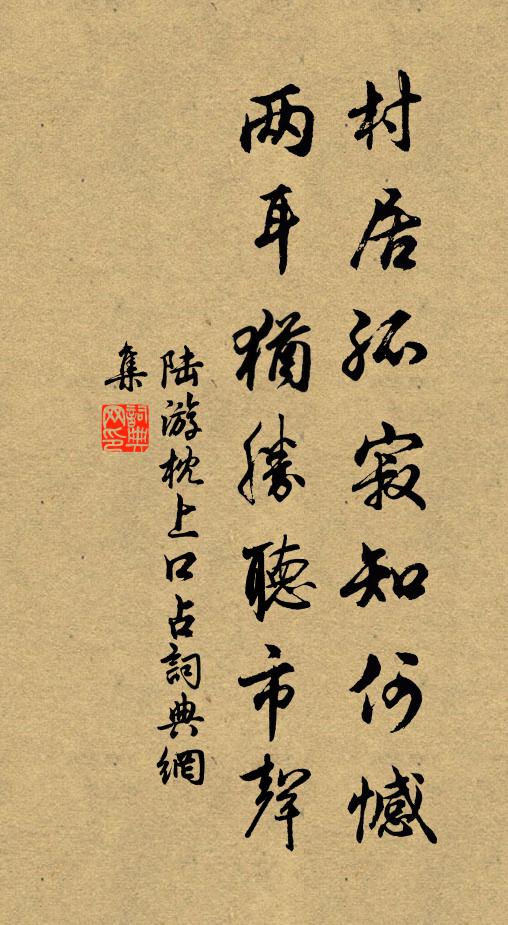 村居孤寂知何憾
两耳猶勝聽市聲
陆游枕上口占詞典網
集
詞典
网印